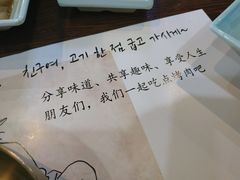 친구여, 고기 한 점 굽고 가시게~
分享味道、共享趣味、享受人生
朋友们，我们一起吃点烤肉吧